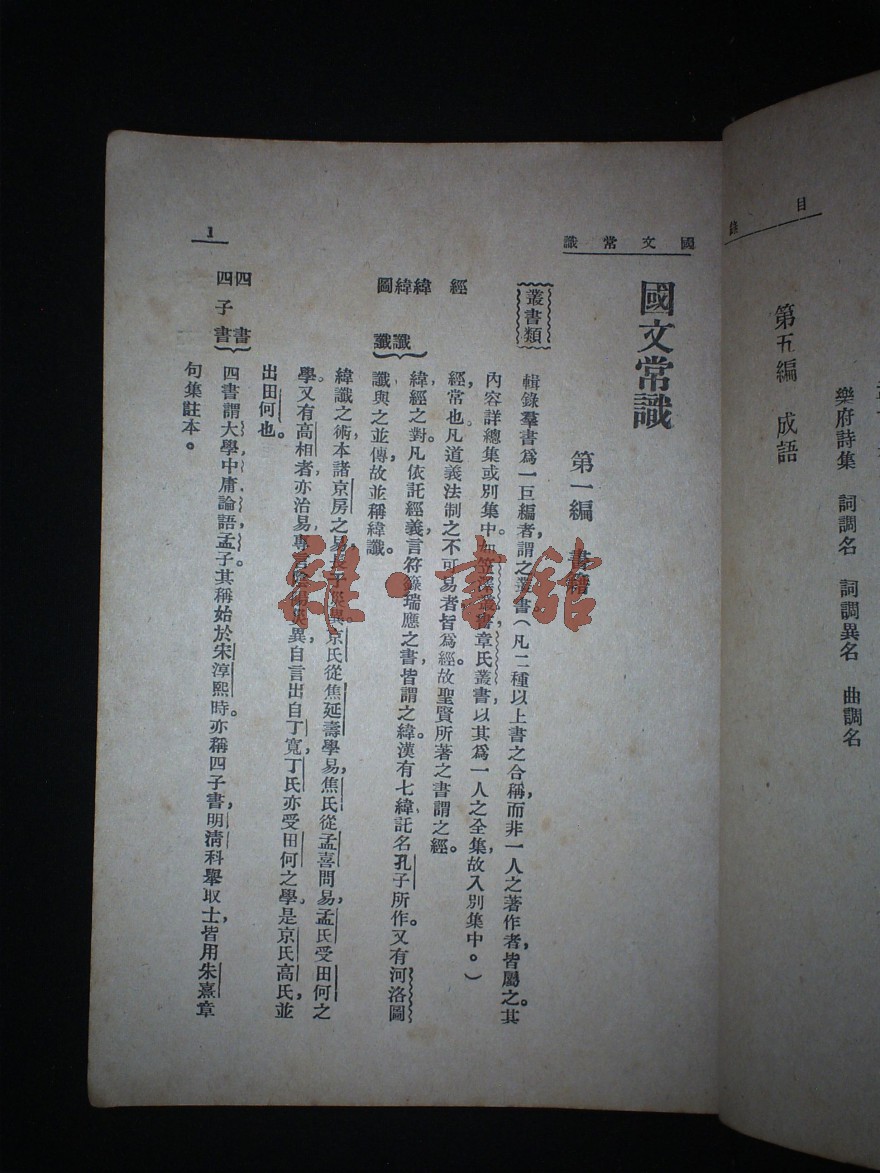 目 錄
樂府詩集 詞調名 詞調異名 曲調名
第五編 成語
國文常識
國文常識
第一編 書籍
叢書類
輯錄羣書爲一巨編者，謂之叢書（凡二種以上書之合稱，而非一人之著作者，皆屬之。其
內容詳總集或別集中。如笠澤叢書章氏叢書以其爲一人之全集，故入別集中。）
經
經，常也。凡道義法制之不可易者，皆爲經。故聖賢所著之書謂之經。
緯 緯讖 圖讖
緯，經之對。凡依託經義，言符籙瑞應之書，皆謂之緯。漢有七緯，託名孔子所作。又有河洛圖
讖與之並傳，故並稱緯讖。
緯讖之術，本諸京房之易，長于災異。京氏從焦延壽學易，焦氏從孟喜問易，孟氏受田何之
學。又有高相者，亦治易，專言陰陽災異，自言出自丁寬，丁氏亦受田何之學。是京氏高氏，並
出田何也。
四書 四子書
四書謂大學，中庸，論語，孟子。其稱始於宋淳熙時。亦稱四子書，明清科舉取士，皆用朱熹章
句集註本。
1
羅·書館